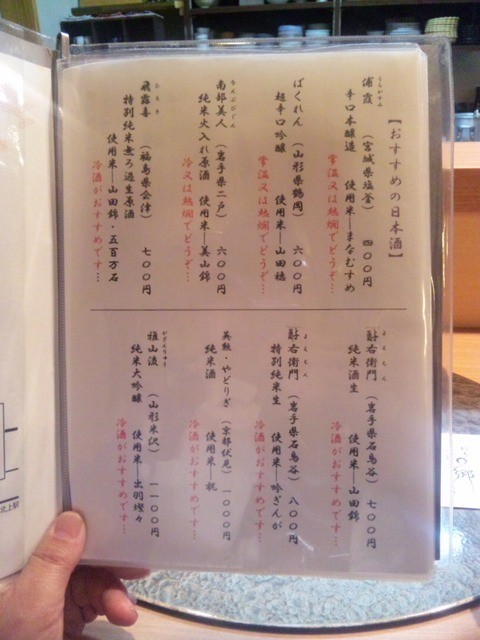 【おすすめの日本酒】
うらがすみ
浦霞 (宮城県塩釜) 四〇〇円
辛口本醸造 使用米―まなむすめ
常温又は熱燗でどうぞ…
ばくれん (山形県鶴岡) 六〇〇円
超辛口吟醸 使用米―山田穂
常温又は熱燗でどうぞ…
なんぶびじん
南部美人 (岩手県二戸) 六〇〇円
純米火入れ原酒 使用米―美山錦
冷又は熱燗でどうぞ…
ひろき
飛露喜 (福島県会津) 七〇〇円
特別純米無ろ過生原酒
使用米―山田錦・五百万石
冷酒がおすすめです…
よえもん
酉与右衛門 (岩手県石鳥谷) 七〇〇円
純米酒生 使用米―山田錦
冷酒がおすすめです…
よえもん
酉与右衛門 (岩手県石鳥谷) 八〇〇円
特別純米生 使用米―吟ぎんが
冷酒がおすすめです…
英勲・やどりぎ (京都伏見) 一〇〇〇円
純米酒 使用米―祝
冷酒がおすすめです…
がさんりゅう
雅山流 (山形米沢) 一一〇〇円
純米大吟醸 使用米―出羽燦々
冷酒がおすすめです…
北上駅